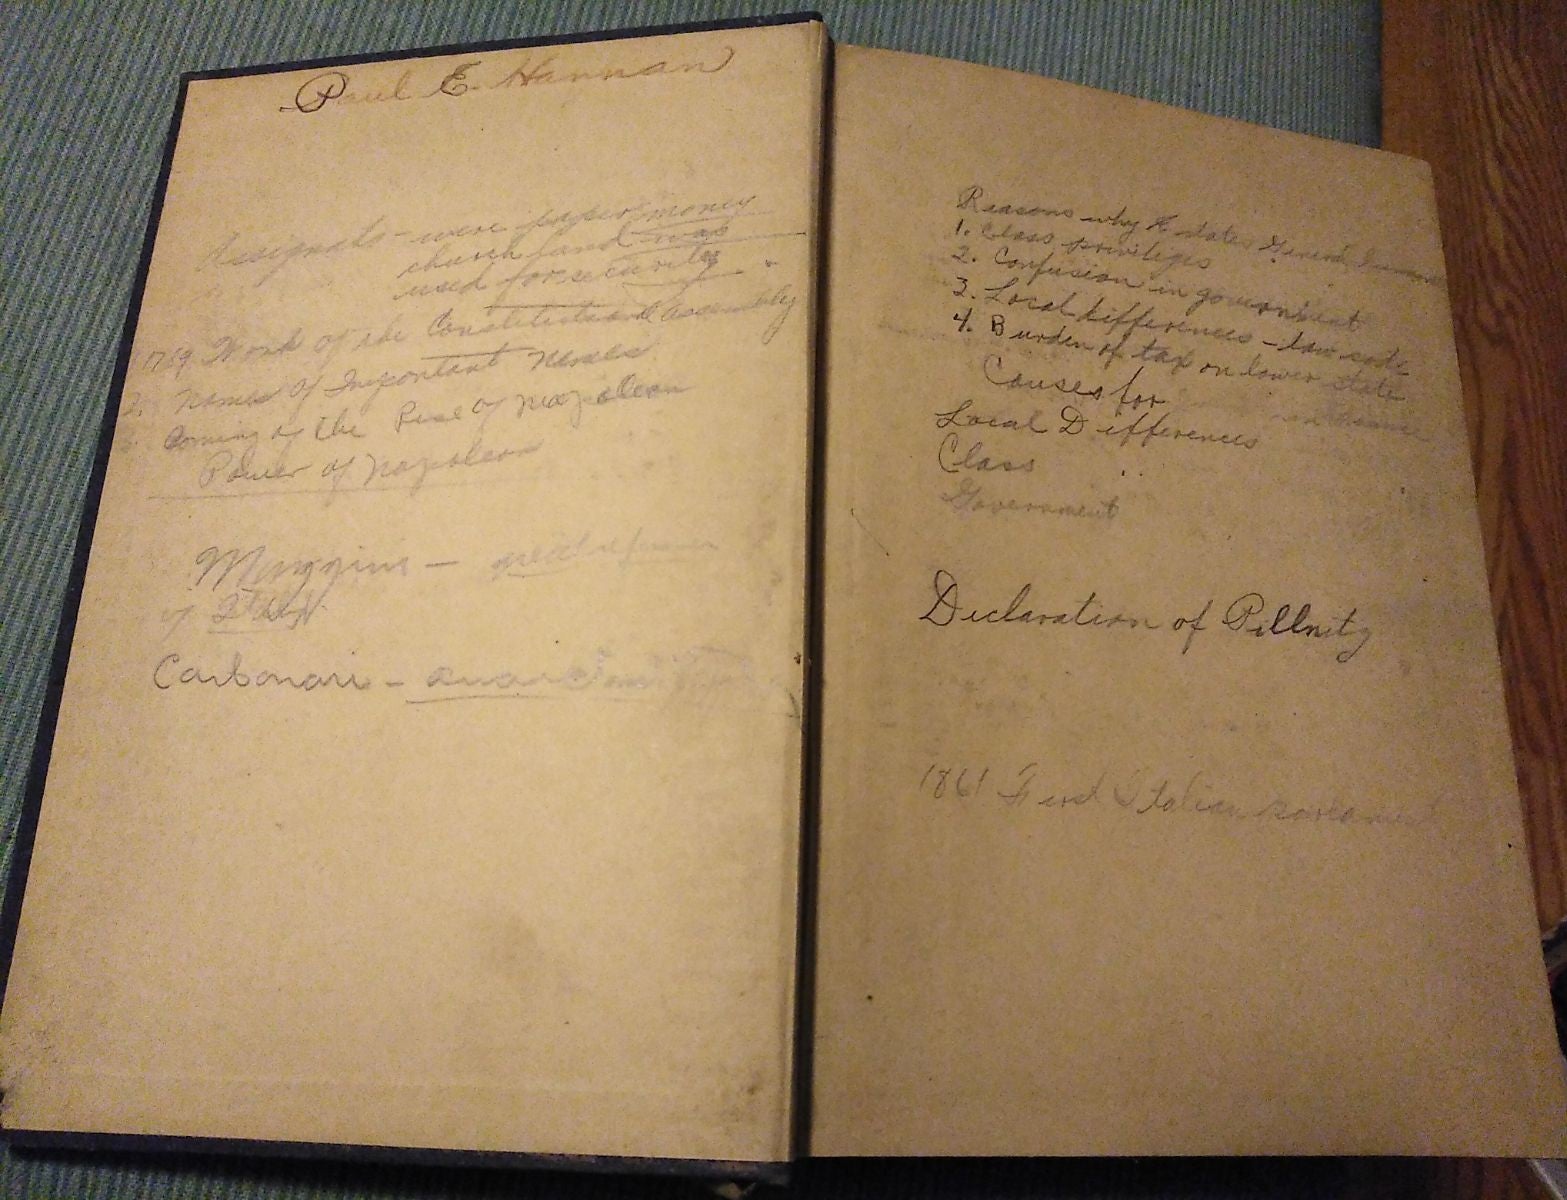 Paul E. Hannan
Assignats - were paper money
church land was
used for security
1789 Work of the Constitutional assembly
2. Names Of Important Names
Coming of the Rise of Napoleon
Power of Napoleon
of Italy
Carbonari -
Reasons why Estates General
1. Class privileges
2. Confusion in government
3. Local differences - law code
4. Burden of tax on lower state
Causes for
Local Differences
Class
Government
Declaration of Pillnitz
1861 First Italian